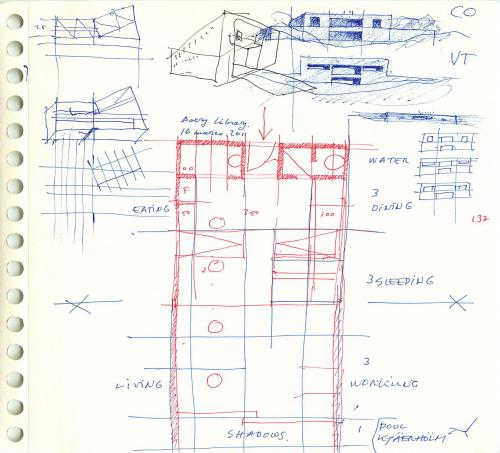 CO
VT
Avery Library
16 marzo 201
WATER
3
DINING
132
F
EATING
50
350
100
3 SLEEPING
3
LIVING
WORKING
SHADOWS.
1
POUL
KJÆERHOLM